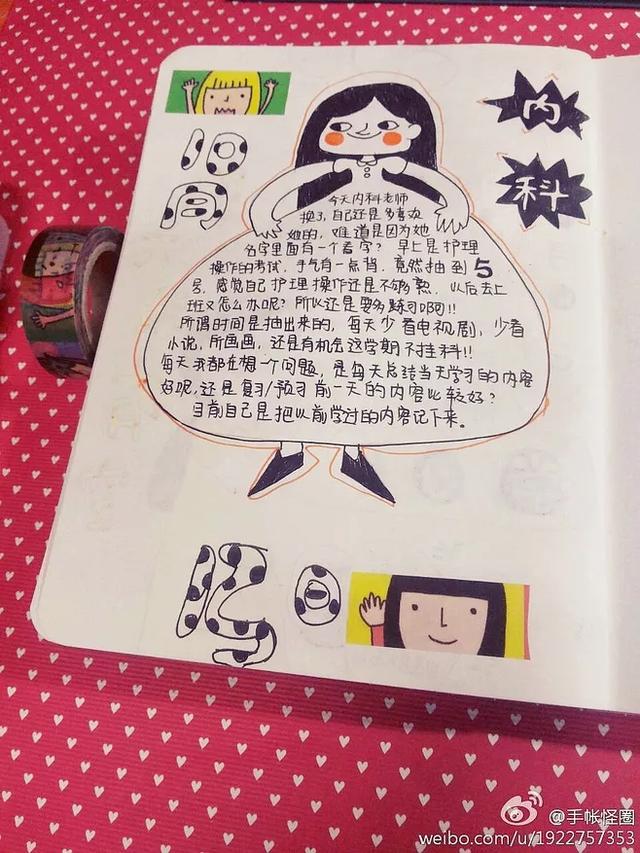 10
月
内
科
今天内科老师
换了,自己还是多喜欢
她的,难道是因为她
名字里面有一个看字?早上是护理
操作的考试,手气有一点背,竟然抽到5
号,感觉自己护理操作还是不够熟,以后去上
班又怎么办呢?所以还是要多练习啊!!
所谓时间是抽出来的,每天少看电视剧,少看
小说,所画画,还是有机会这学期不挂科!!
每天我都在想一个问题,是每天总结当天学习的内容
好呢,还是复习/预习前一天的内容比较好?
目前自己是把以前学过的内容记下来。
日
@手帐怪圈
weibo.com/u/1922757353